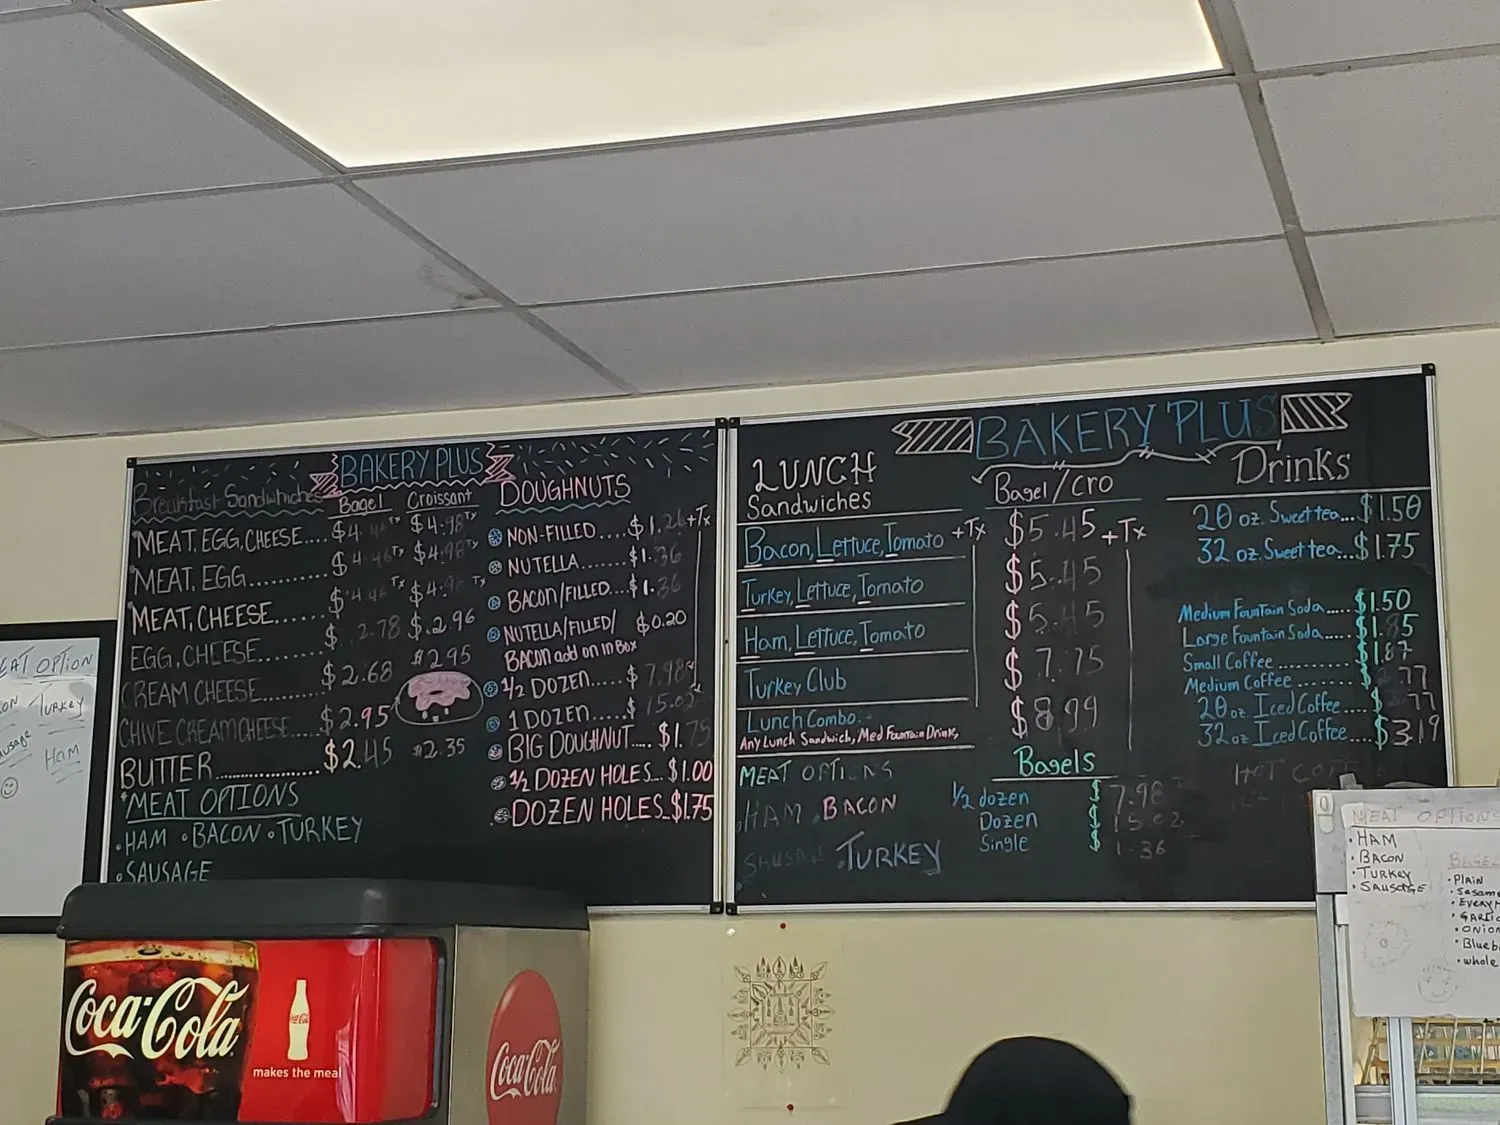 BAKERY PLUS
Breakfast Sandwhiches
Bagel Croissant
*MEAT, EGG, CHEESE.... $4. Tx $4.98 Tx
*MEAT, EGG......... $4.46 Tx $4.98 Tx
*MEAT, CHEESE...... $4.46 Tx $4.9 Tx
EGG, CHEESE....... $2.78 $2.96
CREAM CHEESE....... $2.68 $2.95
CHIVE CREAM CHEESE... $2.95
BUTTER.............. $2.45 $2.35
*MEAT OPTIONS
•HAM •BACON •TURKEY
•SAUSAGE
DOUGHNUTS
NON-FILLED.... $1.26 +Tx
NUTELLA...... $1.36
BACON/FILLED.... $1.36
NUTELLA/FILLED/ $0.20
BACON add on in Box
1/2 DOZEN..... $7.98
1 DOZEN..... $15.02
BIG DOUGHNUT.... $1.75
1/2 DOZEN HOLES... $1.00
DOZEN HOLES.. $1.75
BAKERY PLUS
LUNCH
Sandwiches
Bagel/Cro
Bacon, Lettuce, Tomato +Tx $5.45 +Tx
Turkey, Lettuce, Tomato $5.45
Ham, Lettuce, Tomato $5.45
Turkey Club $7.75
Lunch Combo.. $8.99
Any Lunch Sandwich, Med Fountain Drink,
MEAT OPTIONS
HAM BACON
SAUSAGE TURKEY
Bagels
1/2 dozen $7.98
Dozen $15.02
Single $1.36
Drinks
20 oz. Sweet tea... $1.50
32 oz. Sweet tea... $1.75
Medium Fountain Soda.... $1.50
Large Fountain Soda... $1.85
Small Coffee .......... $1.87
Medium Coffee ..... $2.77
20 oz Iced Coffee.... $2.77
32 oz Iced Coffee.... $3.19
HOT
EAT OPTION
Turkey
ausage
Ham
Coca-Cola
Coca-Cola
makes the meal
Coca-Cola
MEAT OPTIONS
•HAM
•BACON
•TURKEY
•SAUSAGE
BAGEL
•PLAIN
•Sesame
•EVERY
•GARLIC
•ONION
•Blueb
•whole